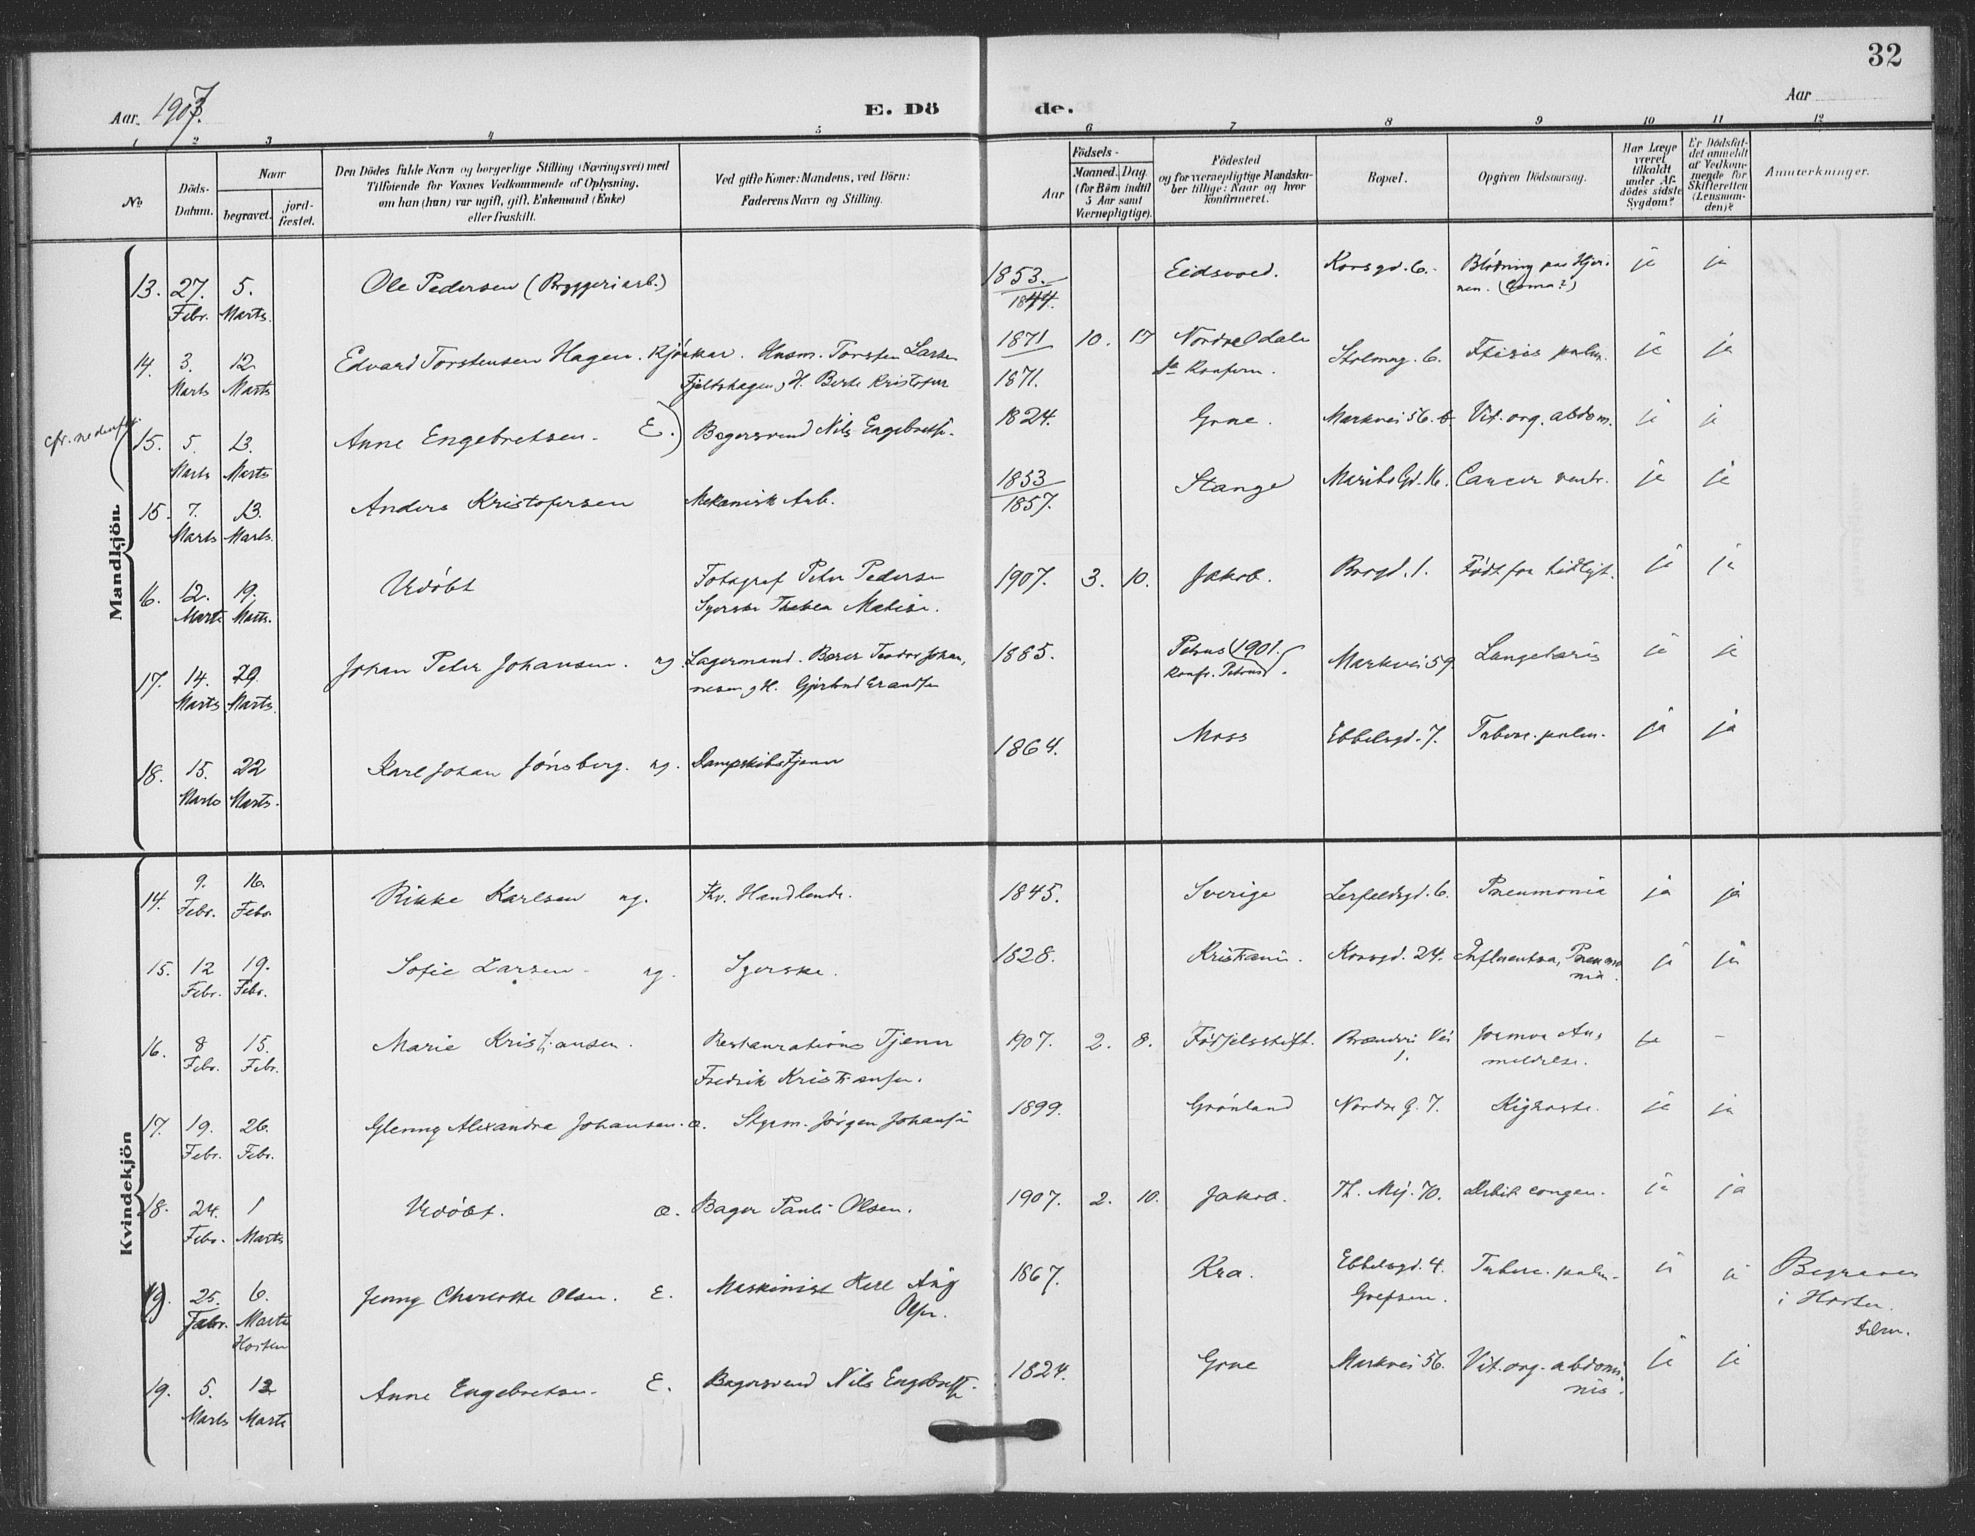 32
Aar 1907.
E. Döde.
Aar
1 2 3 4 5 6 7 8 9 10 11 12
No
Döds-Datum.
Naar
begravet.
jord-fæstet.
Den Dödes fulde Navn og borgerlige Stilling (Næringsvei) med
Tilföiende for Voxnes Vedkommende af Oplysning,
om han (hun) var ugift, gift, Enkemand (Enke)
eller fraskilt.
Ved gifte Koner: Mandens, ved Börn:
Faderens Navn og Stilling.
Födsels-
Aar
Maaned. Dag
(for Börn indtil
5 Aar samt
Værnepligtige).
Födested
og for værnepligtige Mandska-
ber tillige: Naar og hvor
konfirmeret.
Bopæl.
Opgiven Dödsaarsag.
Har Læge
været
tilkaldt
under Af-
dödes sidste
Sygdom?
Er Dödsfal-
det anmeldt
af Vedkom-
mende for
Skifteretten
(Lensman-
den)?
Anmerkninger.
Mandkjön.
13. 27. Febr. 5. Marts. Ole Pedersen (Bryggeriarb.) 1853. 1844. Eidsvold. Korsgd. 6. Blödning paa Hjer-
nen. (Coma?) ja ja
14. 3. Marts 12. Marts Edvard Torstensen Hagen. Husm. Torsten Larsen
Fjeldshagen, H. Berte Kristofer 1871 1871. 10. 17 Nordre Odalen
Konfirm. 6. Ftisis pulm. ja ja
cfr. nedenfor
15. 5. Marts 13. Marts Anne Engebretsen. E. Bagersvend Nils Engebretsen. 1824. Grue. Markvei 56. b Vit. org. abdom. ja ja
15. 7. Marts 13. Marts. Anders Kristofersen Mekanisk Arb. 1853 1857. Stange Maribo Gd. 16. Cancer ventr. ja ja
16. 12. Marts 19. Marts. Udöbt Fotograf Peter Pedersen
Syerske Thekla 1907. 3. 10. Jakob. 1. Födt for tidligt. ja ja
17. 14. Marts 29. Marts. Johan Peter Johansen. ug. Lagermand. Teodor Johan-
nesen og H. 1885. Petrus (1901.
Konfr. Petrus). Markvei 59 Lungebetændelse ja ja
18. 15. Marts 22 Marts. Karl Johan Jönsberg. ug. Dampskibstjener 1864. Moss Ebbelsgd. 7. Tuberc. pulm. ja ja
Kvindekjön
14. 9. Febr. 16. Febr. Rikke Karlsen ug. Fhv. Handlende. 1845. Sverige Lerfaldsgd. 6. Pneumonia ja ja
15. 12 Febr. 19. Febr. Sofie Larsen ug. Syerske. 1828. Kristiania. Korsgd. 24. Influentsa, Pneumo
nia. ja ja
16. 8 Febr. 15. Febr. Marie Kristiansen. Restaurations Tjener
Fredrik Kristiansen. 1907. 2. 8. Födselsstift. 1. Jormor An-
meldelse. –
17. 19. Febr. 26. Febr. Glenny Alexandra Johansen. a. Styrm. Jörgen Johansen 1899. Grönland Nordre G. 7. Kighoste. ja ja
18. 24. Febr. 1 Marts Udöbt. a. Bager Pauli Olsen. 1907. 2. 10. Jakob. Th. Mej. 70. Debil. congen. ja ja
19. 25. Febr. 6. Marts
Horten Jenny Charlotte Olsen. E. Maskinist Karl Aug
Olsen. 1867. Kra. Ebbelsgd. 4.
Grefsen. Tuberc. pulm. ja ja Begraven
i Horten.
19. 5. Marts 13 Marts Anne Engebretsen. E. Bagersvend Nils Engebretsen. 1824. Grue Markvei 56. Vit. org. abdomi-
nis. ja ja